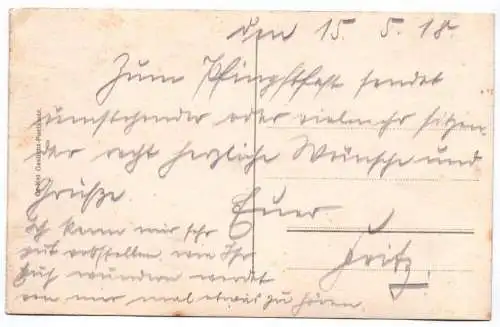 den 15. 5. 18.
Zum Pfingstfest sendet
umstehender oder vielmehr sitzen-
der recht herzliche Wünsche und
Grüße. Euer
Fritz.
Ich kann mir sehr
gut vorstellen, wie Ihr
Euch wundern werdet
von mir mal etwas zu hören.